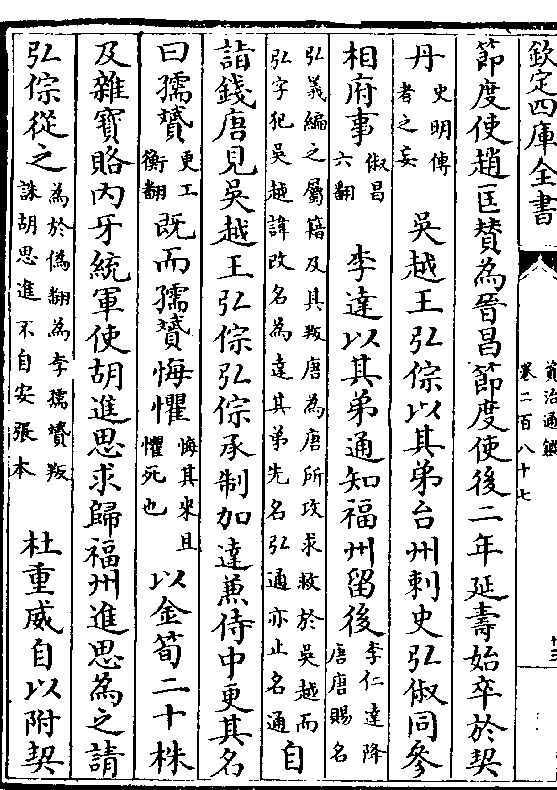 欽定四庫全書
資治通鑑
卷二百八十七
十三
節度使趙匡贊為晉昌節度使後二年延壽始卒於契
丹史明傳者之妄 吳越王弘倧以其弟台州刺史弘俶同參
相府事俶昌六翻 李達以其弟通知福州留後李仁達降唐唐賜名
弘義編之屬籍及其叛唐為唐所攻求救於吳越而弘字犯吳越諱改名為達其弟先名弘通亦止名通自
詣錢唐見吳越王弘倧弘倧承制加達兼侍中更其名
曰孺贇更工衡翻既而孺贇悔懼悔其來且懼死也以金筍二十株
及雜寶賂內牙統軍使胡進思求歸福州進思為之請
弘倧從之為於偽翻為李孺贇叛誅胡思進不自安張本 杜重威自以附契